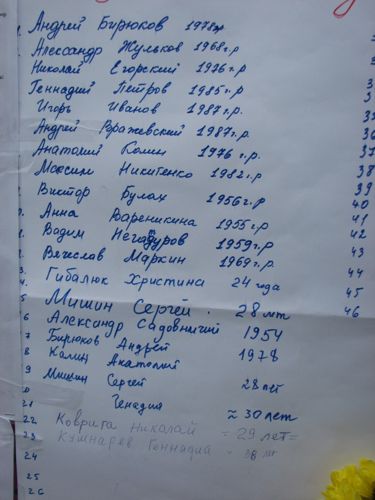 Андрей Бирюков 1978г.р
Александр Жульков 1968г.р
Николай Егорский 1976г.р
Геннадий Петров 1985г.р
Игорь Иванов 1987г.р.
Андрей 1987г.р.
Анатолий Калин 1976г.р.
Максим Никитенко 1982г.р
Виктор Булах 1956г.р
Анна Вареникина 1955г.р
Вадим 1959г.р
Вячеслав Маркин 1969г.р.
Гибалюк Христина 24 года
5 Мишин Сергей. 28 лет
6 Александр Садовничий 1954
7 Бирюков Андрей
8 Калин Анатолий 1978
9 Мишин Сергей 28 лет
20
21 Генадия ≈ 30 лет
22 Коврига Николай - 29 лет=
23 Кушнарев Геннадий -
24
25
26
35
36
37
38
39
40
41
42
43
44
45
46